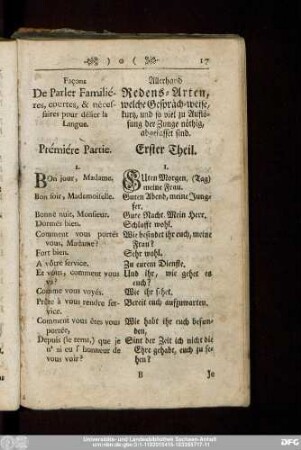 ) o (
17
Façons
De Parler Familié-
res, courtes, & néces-
saires pour délier la
Langue.
Prémiére Partie.
1.
BOn jour, Madame.
Bon soir, Mademoiselle.
Bonne nuit, Monsieur.
Dormés bien.
Comment vous portés
vous, Madame?
Fort bien.
A vôtre service.
Et vous, comment vous
va?
Comme vous voyés.
Prêt à vous rendre ser-
vice.
Comment vous étes vous
portée,
Depuis (le tems,) que je
n' ai eu l' honneur de
vous voir?
Allerhand
Redens-Arten,
welche Gespräch-weise,
kurtz, und so viel zu Auflö-
sung der Zunge nöthig,
abgefasset sind.
Erster Theil.
1.
GUten Morgen, (Tag)
meine Frau.
Guten Abend, meine Jung-
fer.
Gute Nacht. Mein Herr,
Schlafft wohl.
Wie befindet ihr euch, meine
Frau?
Sehr wohl.
Zu eurem Dienste,
Und ihr, wie gehet es
euch?
Wie ihr sehet.
Bereit euch aufzuwarten.
Wie habt ihr euch befun-
den,
Sint der Zeit ich nicht die
Ehre gehabt, euch zu se-
hen?
B
Je
Universitäts- und Landesbibliothek Sachsen-Anhalt